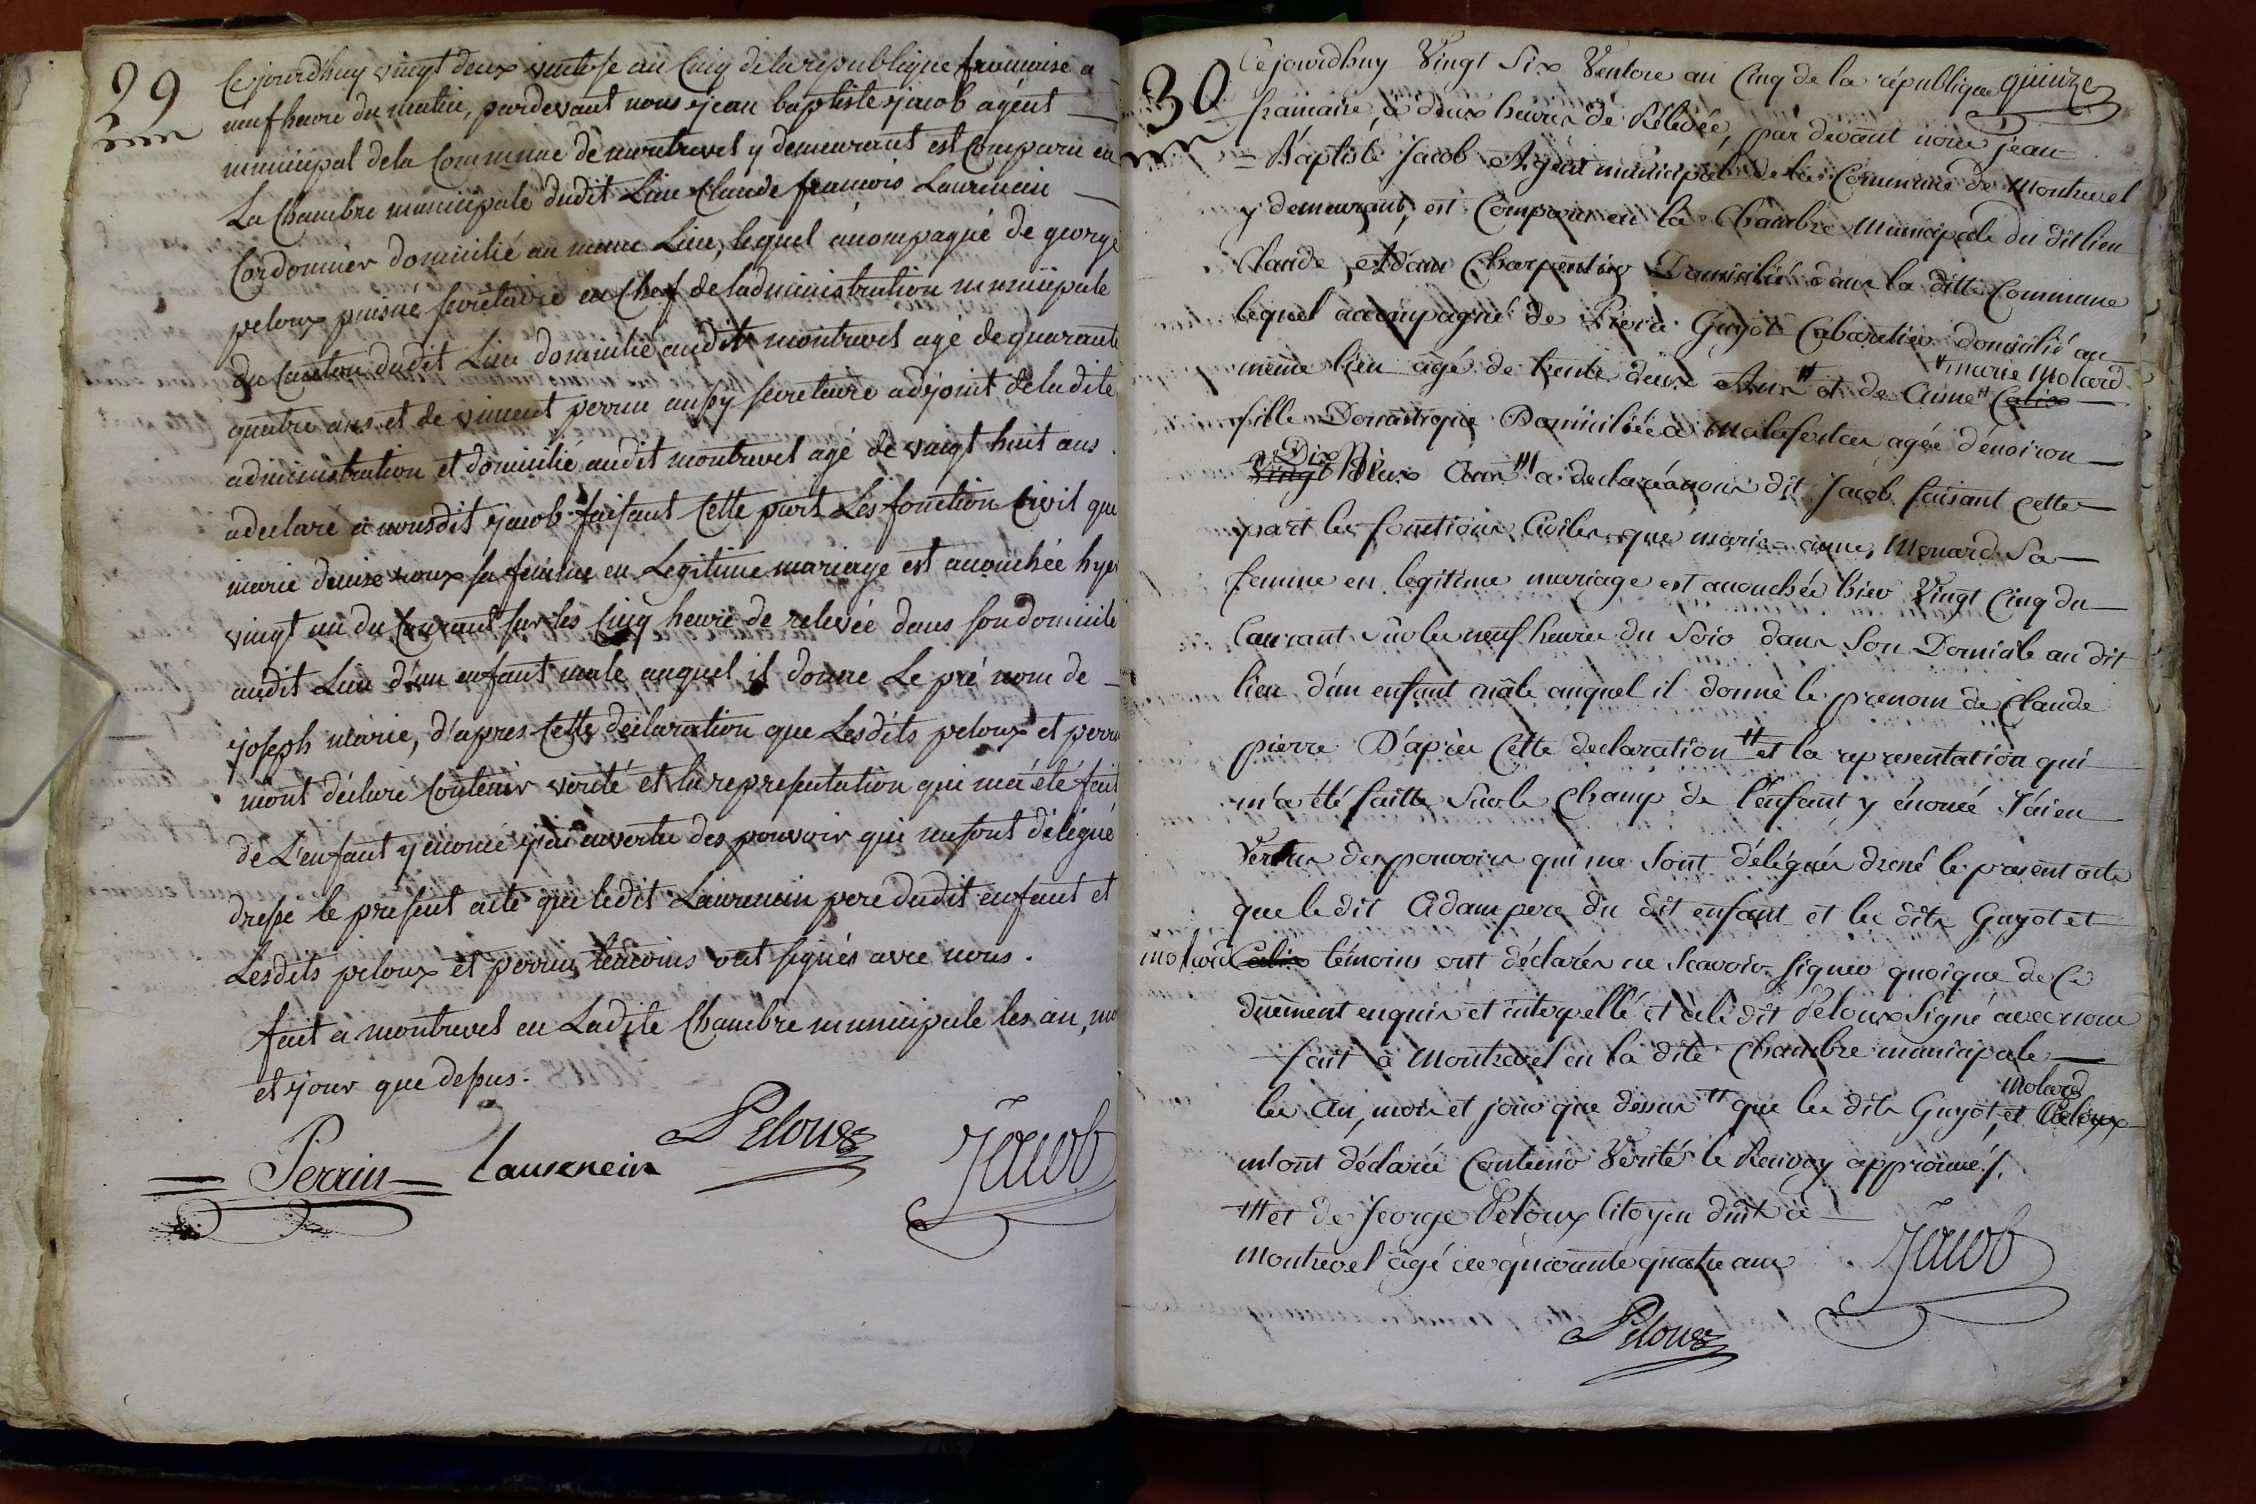 29
Cejourdhuy vingt deux ventose an Cinq de la republique francoise a
neuf heure du matin, pardevant nous jean baptiste jacob agent
municipal de la Commune de montrevel y demeurant est Comparu en
La Chambre municipale dudit Lieu Claude francois Laurencin
Cordonnier domicilié au meme Lieu, lequel acompagné de george
peloux puisné secretaire en Chef de ladministration municipale
du Canton dudit Lieu domicilié audit montrevel agé de quarante
quatre ans et de vincent perrin aussy secretaire adjoint de ladite
administration et domicilié audit montrevel agé de vaingt huit ans
a declaré a nousdit jacob faisant Cette part Les fonction Civil que
marie denise roux sa femme en Legitime mariage est acouchée hyer
vingt un du Courant sur les Cinq heure de relevée dans son domicile
audit Lieu d'un enfant male auquel il donne Le pré nom de
joseph marie, d'apres Cette declaration que Lesdits peloux et perrin
m'ont déclaré Contenir verité et la representation qui m'a été fait
de L'enfant y enoncé j'ai en vertu des pouvoir qui me sont délégué
dressé le present acte que ledit Laurencin pere dudit enfant et
Lesdits peloux et perrin temoins ont signés avec nous.
fait a montrevel en Ladite Chambre municipale les an, mo
et jour que dessus.
Perrin Laurencin Peloux Jacob
quinze
30
Cejourdhuy Vingt Six Ventose an Cinq de la république
francaise, à deux heures de Rélevée, par devant nous jean
Baptiste Jacob Agent municipal de la Commune de Montrevel
y demeurant, est Comparu en la Chambre Municipale du dit lieu
Claude Adam Charpentier Domicilié dans la ditte Commune
lequel accompagné de Pierre Guyot Cabaretier domicilié au
marie Molard
même lieu agé de trente deux Ans et de Aimé
fille Domestique Domiciliée à Malafretaz agée d'environ
Dix
Vingt Deux Ans a declaré à nous dit Jacob faisant Cette
part les fonctions Civiles que marie anne Monard Sa
femme en legitime mariage est acouchée hier Vingt Cinq du
Courant sur les neuf heures du Soir dans Son Domicile au dit
lieu d'un enfant mâle auquel il donne le prenom de Claude
pierre D'après Cette declaration et la representation qui
m'a été faitte Sur le Champ de l'enfant y énoncé J'ai en
Vertus des pouvoirs qui me Sont délégués dressé le present acte
que le dit Adam pere du dit enfant et les dits Guyot et
molard témoins ont déclarés ne Scavoir Signer quoique de Ce
duëment enquis et interpellé et le dit Peloux Signé avec nous
fait à Montrevel en la dite Chambre municipale
molard
les An, mois et jour que dessus que les dits Guyot, et Peloux
m'ont déclaré Contenir Verité le Renvoy approuvé.
et de George Peloux Citoyen dudit à
Montrevel agé de quarante quatre ans
Jacob
Peloux